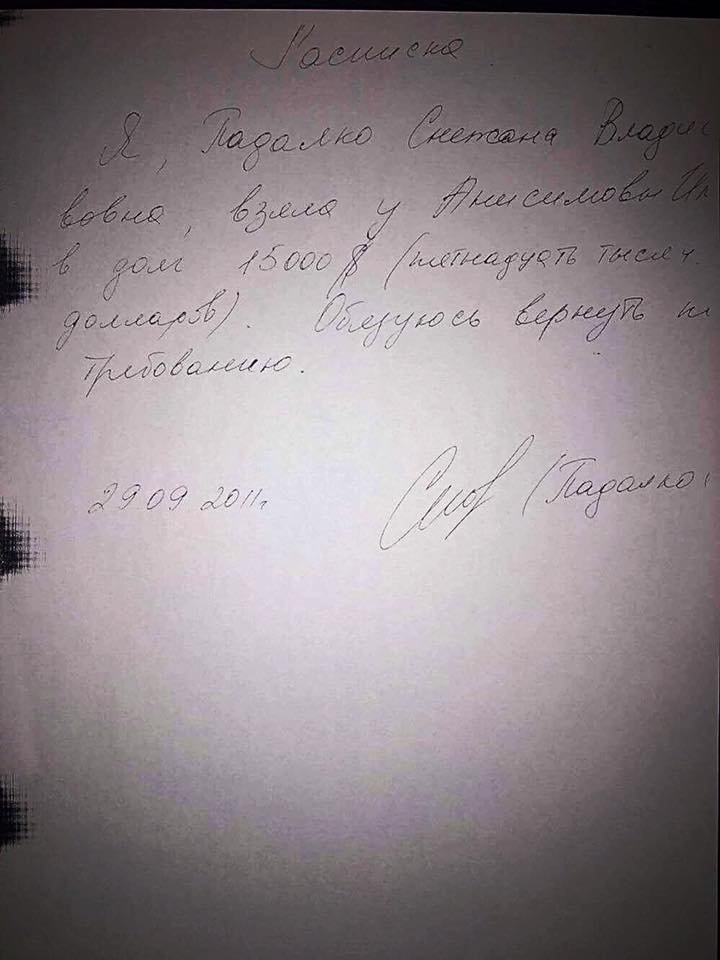 Расписка
Я, Падалко Снежана Влади
вовна, взяла у Анисимовы
в долг 15000 $ (пятнадцать тысяч.
долларов). Обязуюсь вернуть п
требованию.
29 09 2011г (Падалко